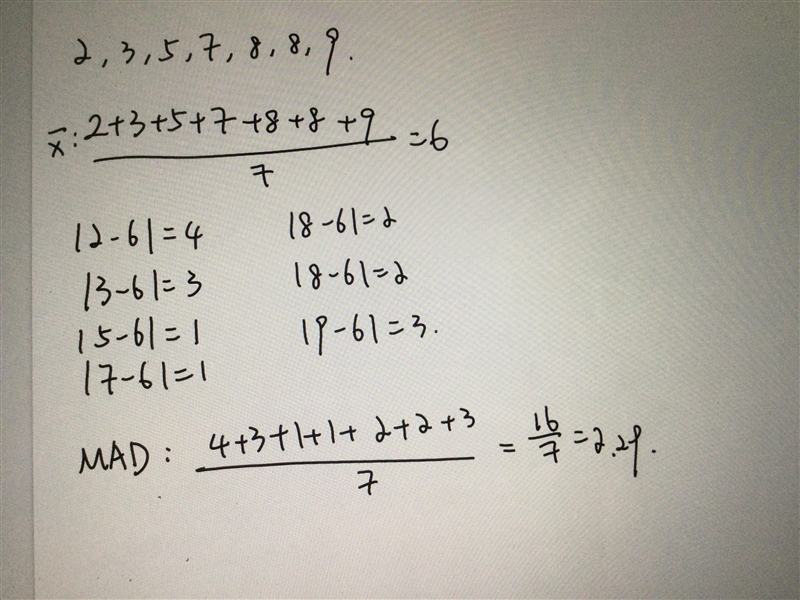 2, 3, 5, 7, 8, 8, 9.
x̄: (2+3+5+7+8+8+9)/7 = 6
|2-6|=4
|3-6|=3
|5-6|=1
|7-6|=1
|8-6|=2
|8-6|=2
|9-6|=3.
MAD: (4+3+1+1+2+2+3)/7 = 16/7 = 2.29.